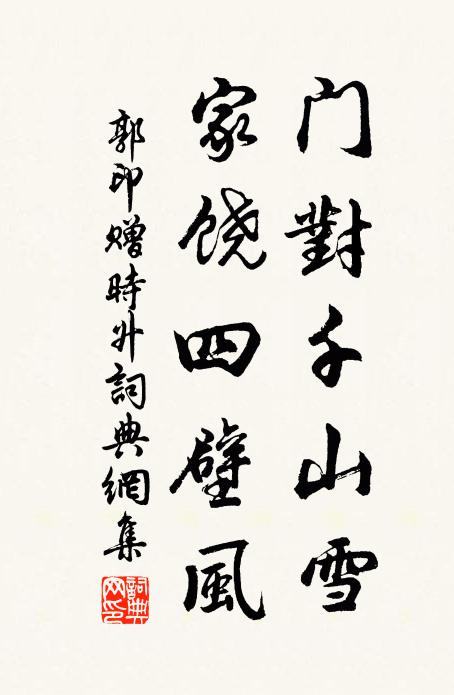 门對千山雪
家饶四壁風
郭印贈時升詞典網集
詞典網印